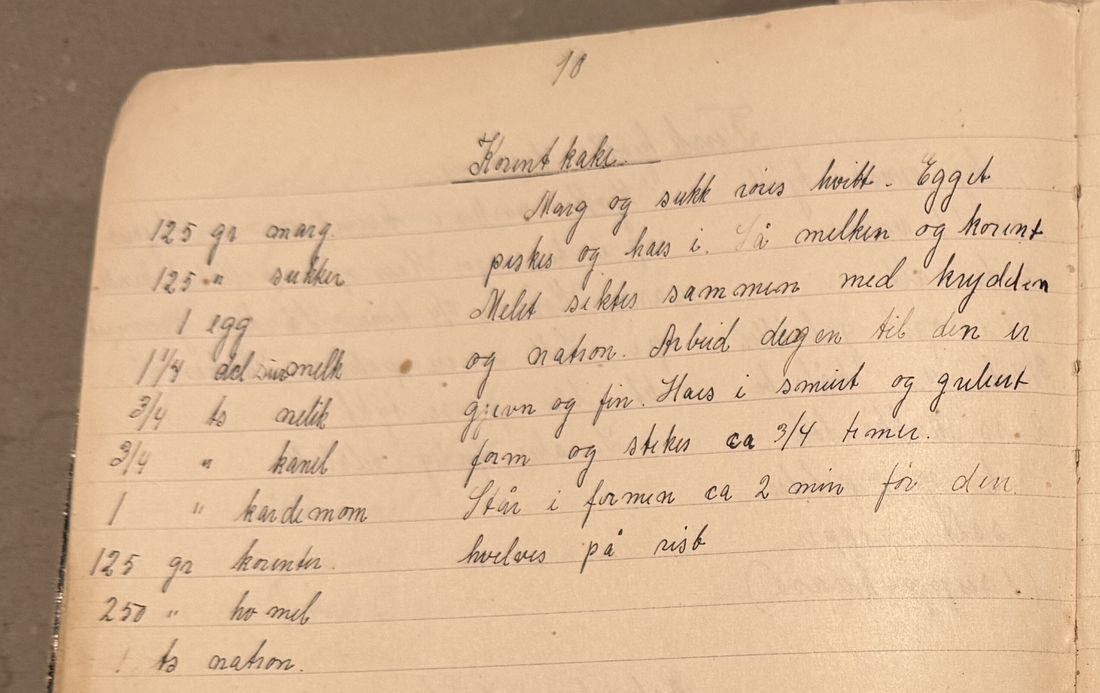 98
Korent kake.
125 gr marg.
125 " sukker
1 egg
1 1/4 del surmelk
3/4 ts nelik
3/4 " kanel
1 " kardemom
125 gr korenter.
250 " hv mel
1 ts natron.
Marg og sukk røres hvitt. Egget
piskes og haes i. Så melken og korent
Melet siktes sammen med krydden
og natron. Arbeid deigen til den er
gjevn og fin. Haes i smurt og grubert
form og stekes ca 3/4 timer.
Står i formen ca 2 min før den
hvelves på rist